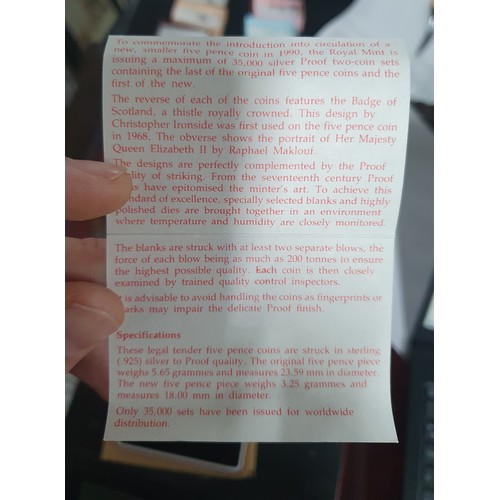 To commemorate the introduction into circulation of a
new, smaller five pence coin in 1990, the Royal Mint is
issuing a maximum of 35,000 silver Proof two-coin sets
containing the last of the original five pence coins and the
first of the new.
The reverse of each of the coins features the Badge of
Scotland, a thistle royally crowned. This design by
Christopher Ironside was first used on the five pence coin
in 1968. The obverse shows the portrait of Her Majesty
Queen Elizabeth II by Raphael Maklouf.
The designs are perfectly complemented by the Proof
of striking. From the seventeenth century Proof
have epitomised the minter's art. To achieve this
of excellence, specially selected blanks and highly
polished dies are brought together in an environment
where temperature and humidity are closely monitored.
The blanks are struck with at least two separate blows, the
force of each blow being as much as 200 tonnes to ensure
the highest possible quality. Each coin is then closely
examined by trained quality control inspectors.
It is advisable to avoid handling the coins as fingerprints or
marks may impair the delicate Proof finish.
Specifications
These legal tender five pence coins are struck in sterling
(.925) silver to Proof quality. The original five pence piece
weighs 5.65 grammes and measures 23.59 mm in diameter.
The new five pence piece weighs 3.25 grammes and
measures 18.00 mm in diameter.
Only 35,000 sets have been issued for worldwide
distribution.